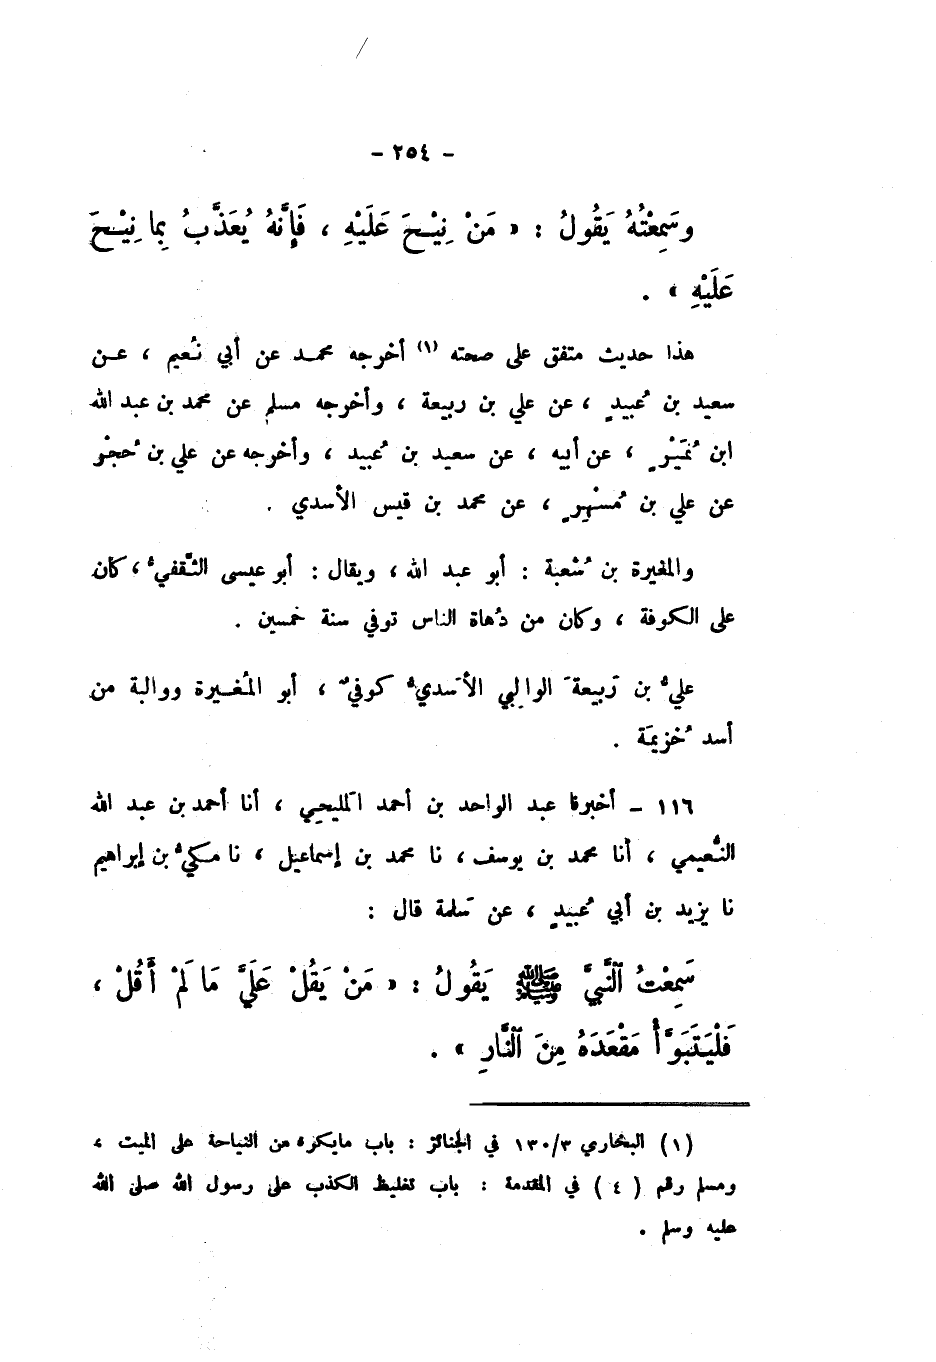 - ٢٥٤ -
وسَمِعْتُهُ يَقُولُ : « مَنْ نِيْحَ عَلَيْهِ ، فَإِنَّهُ يُعَذَّبُ بِما نِيْحَ
عَلَيْهِ » .
هذا حديث متفق على صحته (١) أخرجه محمد عن أبي نُعيم ، عن
سعيد بن عُبيدٍ ، عن علي بن ربيعة ، وأخرجه مسلم عن محمد بن عبد الله
ابن نُمَيْرٍ ، عن أبيه ، عن سعيد بن عُبيد ، وأخرجه عن علي بن حُجْرٍ
عن علي بن مُسْهِرٍ ، عن محمد بن قيس الأسدي .
والمغيرة بن شُعبة : أبو عبد الله ، ويقال : أبو عيسى الثَّقفيُّ ، كان
على الكوفة ، وكان من دُهاة الناس توفي سنة خمسين .
عليُّ بن رَبيعةَ الوالِبي الأسَديُّ كوفيٌّ ، أبو المُغيرة ووالبة من
أسد خُزيمَة .
١١٦ - أخبرنا عبد الواحد بن أحمد المَليحي ، أنا أحمد بن عبد الله
النُّعيمي ، أنا محمد بن يوسف ، نا محمد بن إسماعيل ، نا مكيُّ بن إبراهيم
نا يزيد بن أبي عُبيدٍ ، عن سَلمة قال :
سَمِعْتُ ٱلنَّبِيَّ ﷺ يَقُولُ : « مَنْ يَقُلْ عَلَيَّ مَا لَمْ أَقُلْ ،
فَلْيَتَبَوَّأْ مَقْعَدَهُ مِنَ ٱلنَّارِ » .
(١) البخاري ١٣٠/٣ في الجنائز : باب مايكره من النياحة على الميت ،
ومسلم رقم ( ٤ ) في المقدمة : باب تغليظ الكذب على رسول الله صلى الله
عليه وسلم .